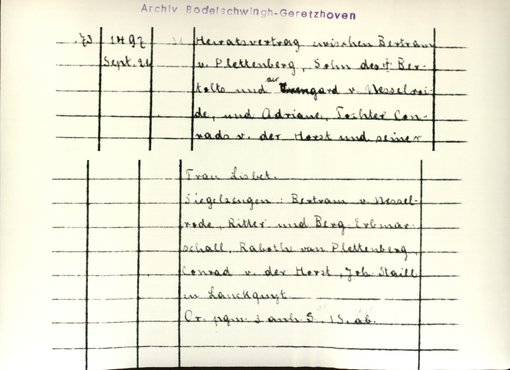 Archiv Bodelschwingh-Geretzhoven
73 1497 Heiratsvertrag zwischen Bertram
Sept. 21 v. Plettenberg, Sohn des † Ber-
tolts und v. Nesselro-
de, und Adriane, Tochter Con-
rads v. der Horst und seiner
Frau Lisbet.
Siegelzeugen: Bertram v. Nessel-
rode, Ritter und Berg. Erbmar-
schall, Raboth van Plettenberg,
Conrad v. der Horst, Joh. Staill
in Lanckquyt
Or. pgm. 3 anh S. 15. ab.